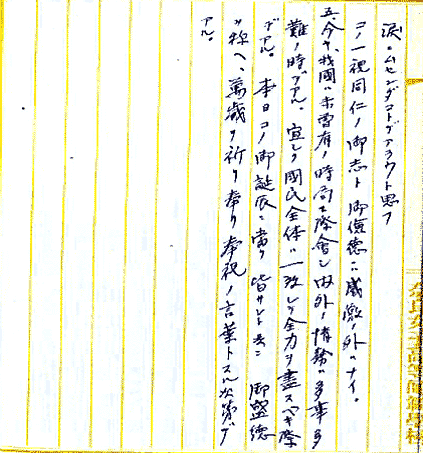 涙ニムセンダコトデアラウト思フ
コノ一視同仁ノ御志ト御儉德ニ感激ノ外ハナイ。
五、今ヤ、我國ハ未曽有ノ時局ニ際會シ内外ノ情勢ハ多事多
難ノ時デアル。宜シク國民全体ハ一致シテ全力ヲ盡スベキ際
デアル。本日コノ御誕辰ニ當リ皆サント共ニ御聖德
ヲ称ヘ、萬歳ヲ祈リ奉リ奉祝ノ言葉トスル次第デ
アル。
女子高等師範學校